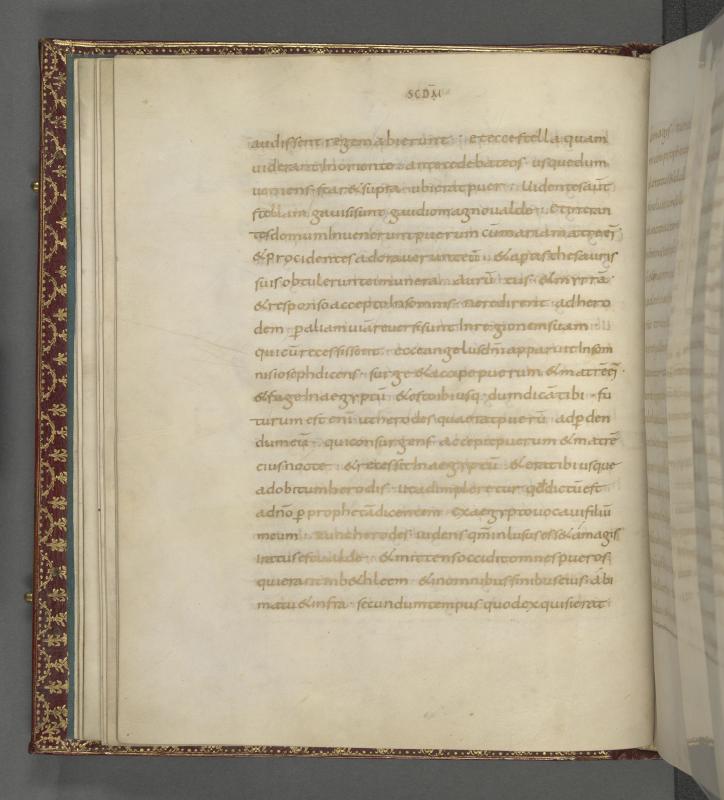 SCDM
audissent regem abierunt · et ecce stella quam
uiderant In oriente · antecedebat eos usque dum
ueniens staret supra ubi erat puer · Uidentes aūt
stellam gauisi sunt gaudio magno ualde · Et intran
tes domum Inuenerunt puerum cū maria matre eī
& procidentes adorauerunt eū · & apertis thesauris
suis obtulerunt ei munera · aurū · tus · & myrrā ·
& responso accepto In somnis ne redirent ad hero
dem · p aliam uiā reuersi sunt In regionem suam
qui cū recessissent · ecce angelus dn̄i apparuit In som
nis ioseph dicens · surge & accipe puerum & matrē eī ·
& fuge In aegyptū · & esto ibi usq· dum dicā tibi · fu
turum est enī ut herodes quaerat puerū ad pden
dum eū · qui consurgens accepit puerum & matrē
eius nocte · & recessit In aegyptū & erat ibi usque
ad obitum herodis · ut adimpleretur qd dictū est
a dn̄o p prophetā dicentem · Ex aegypto uocaui filiū
meum · tunc herodes uidens qm̄ inlusus ess& a magis
Iratus est ualde · & mittens occidit omnes pueros
qui erant In b&hleem · & in omnibus finibus eius · A bi
matu & infra · secundum tempus quod exquisierat